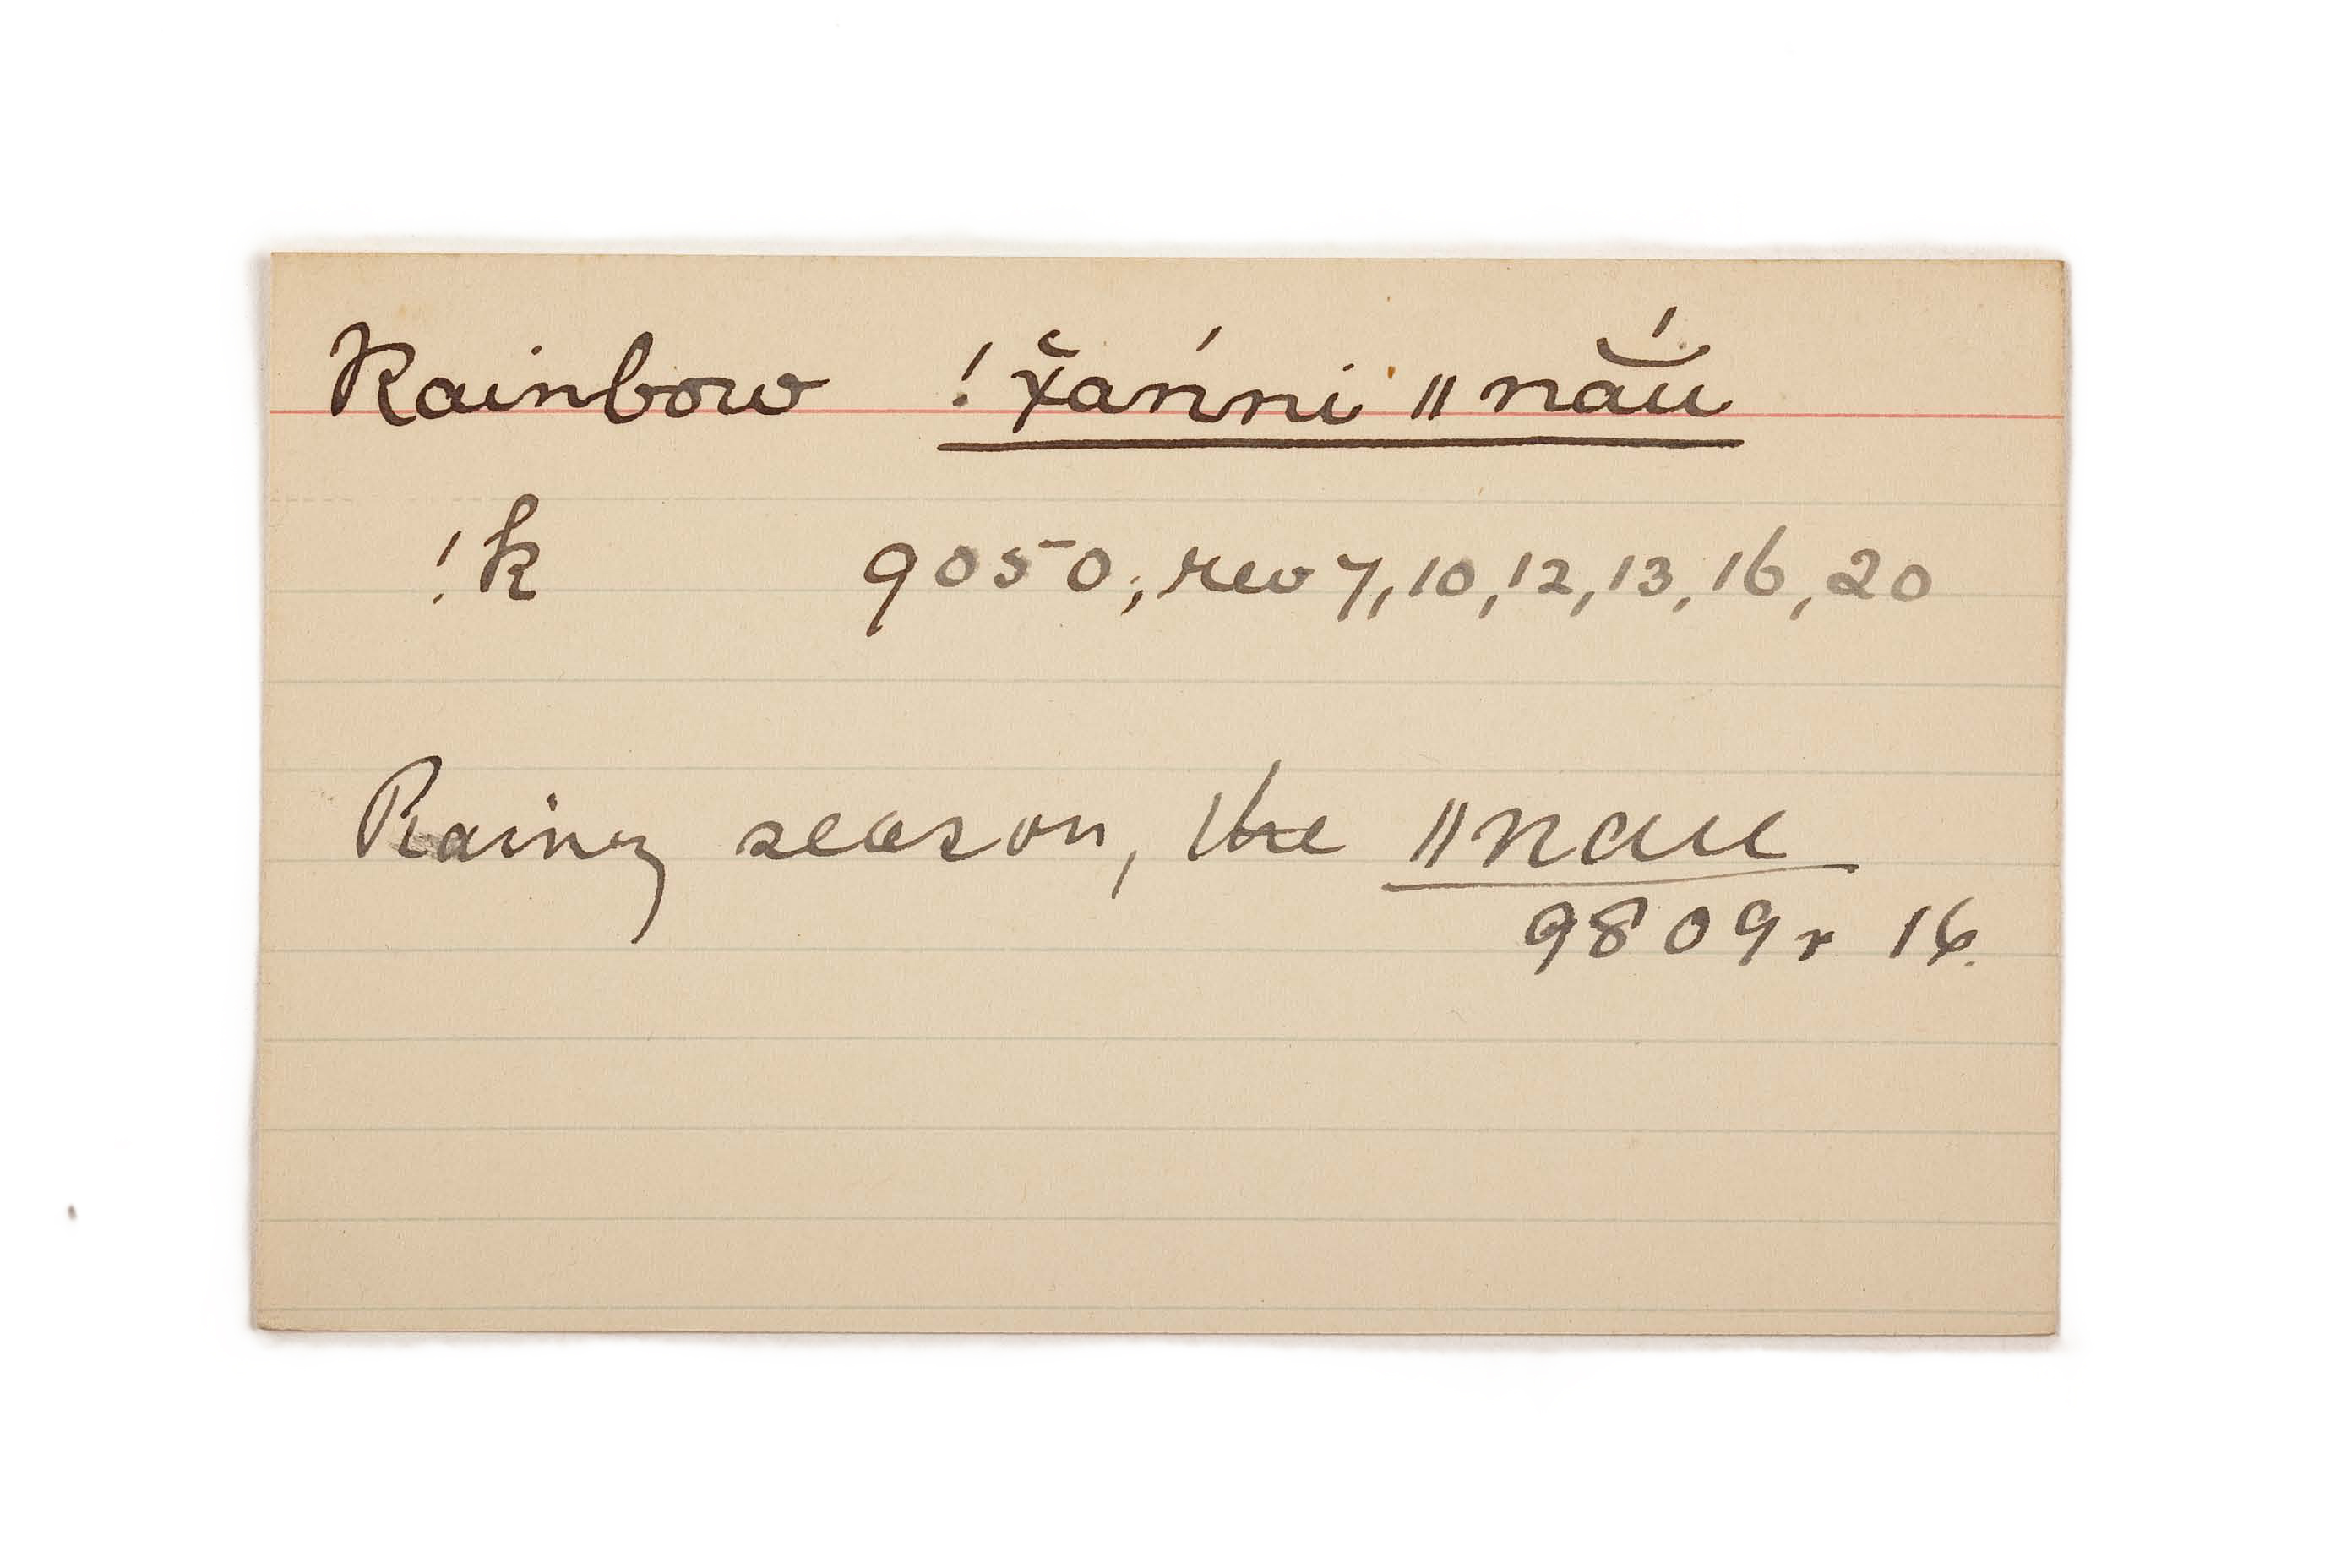 Rainbow ! x̆ańni ǁ nắu
!k 9050; rev 7, 10, 12, 13, 16, 20
Rainy season, the ǁnau
9809 r 16.